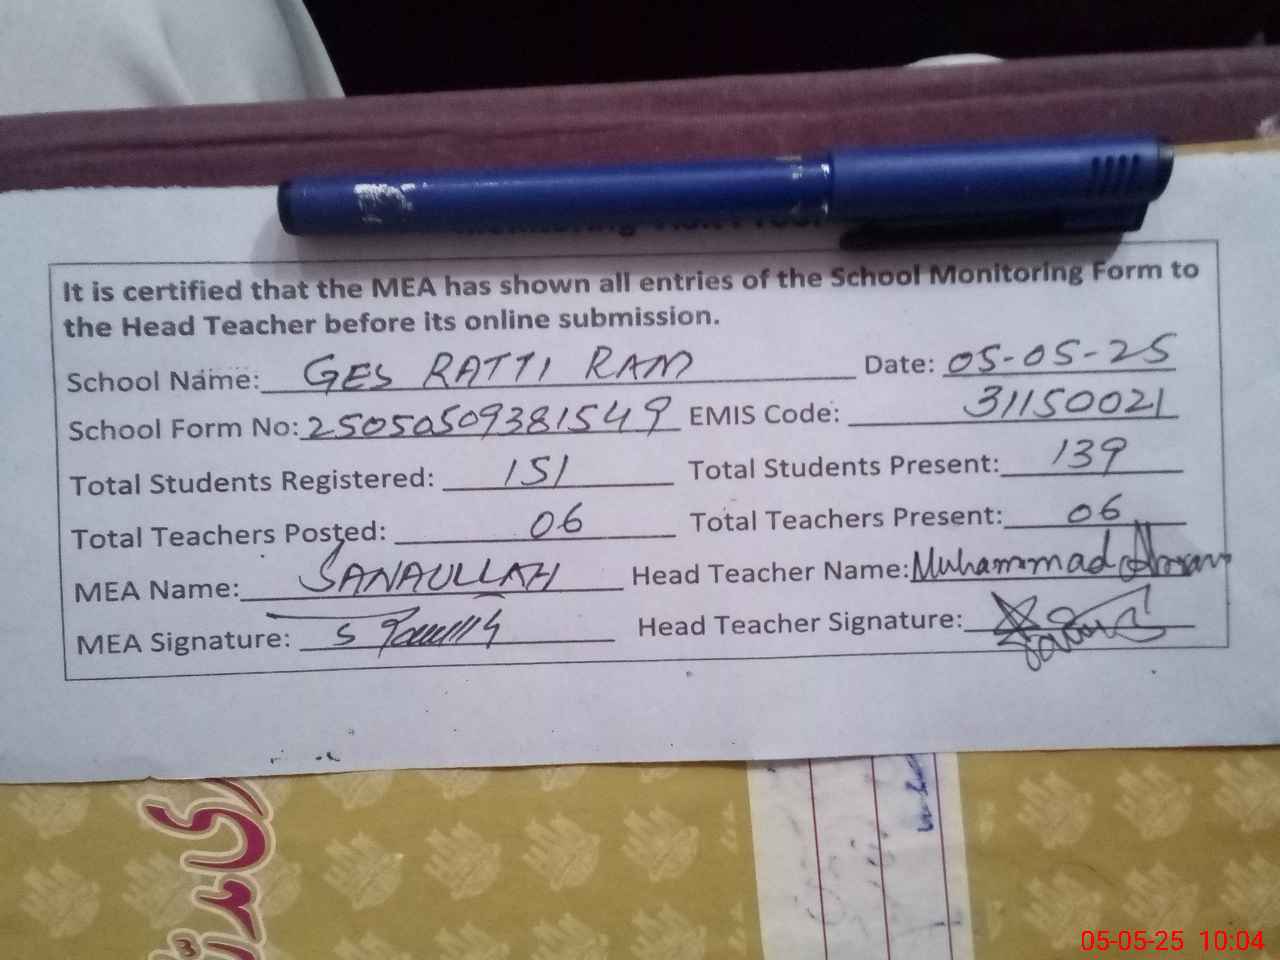 It is certified that the MEA has shown all entries of the School Monitoring Form to
the Head Teacher before its online submission.
School Name: GES RATTI RAM Date: 05-05-25
School Form No: 25050509381549 EMIS Code: 31150021
Total Students Registered: 151 Total Students Present: 139
Total Teachers Posted: 06 Total Teachers Present: 06
MEA Name: SANAULLAH Head Teacher Name: Muhammad
MEA Signature: Head Teacher Signature:
05-05-25 10:04